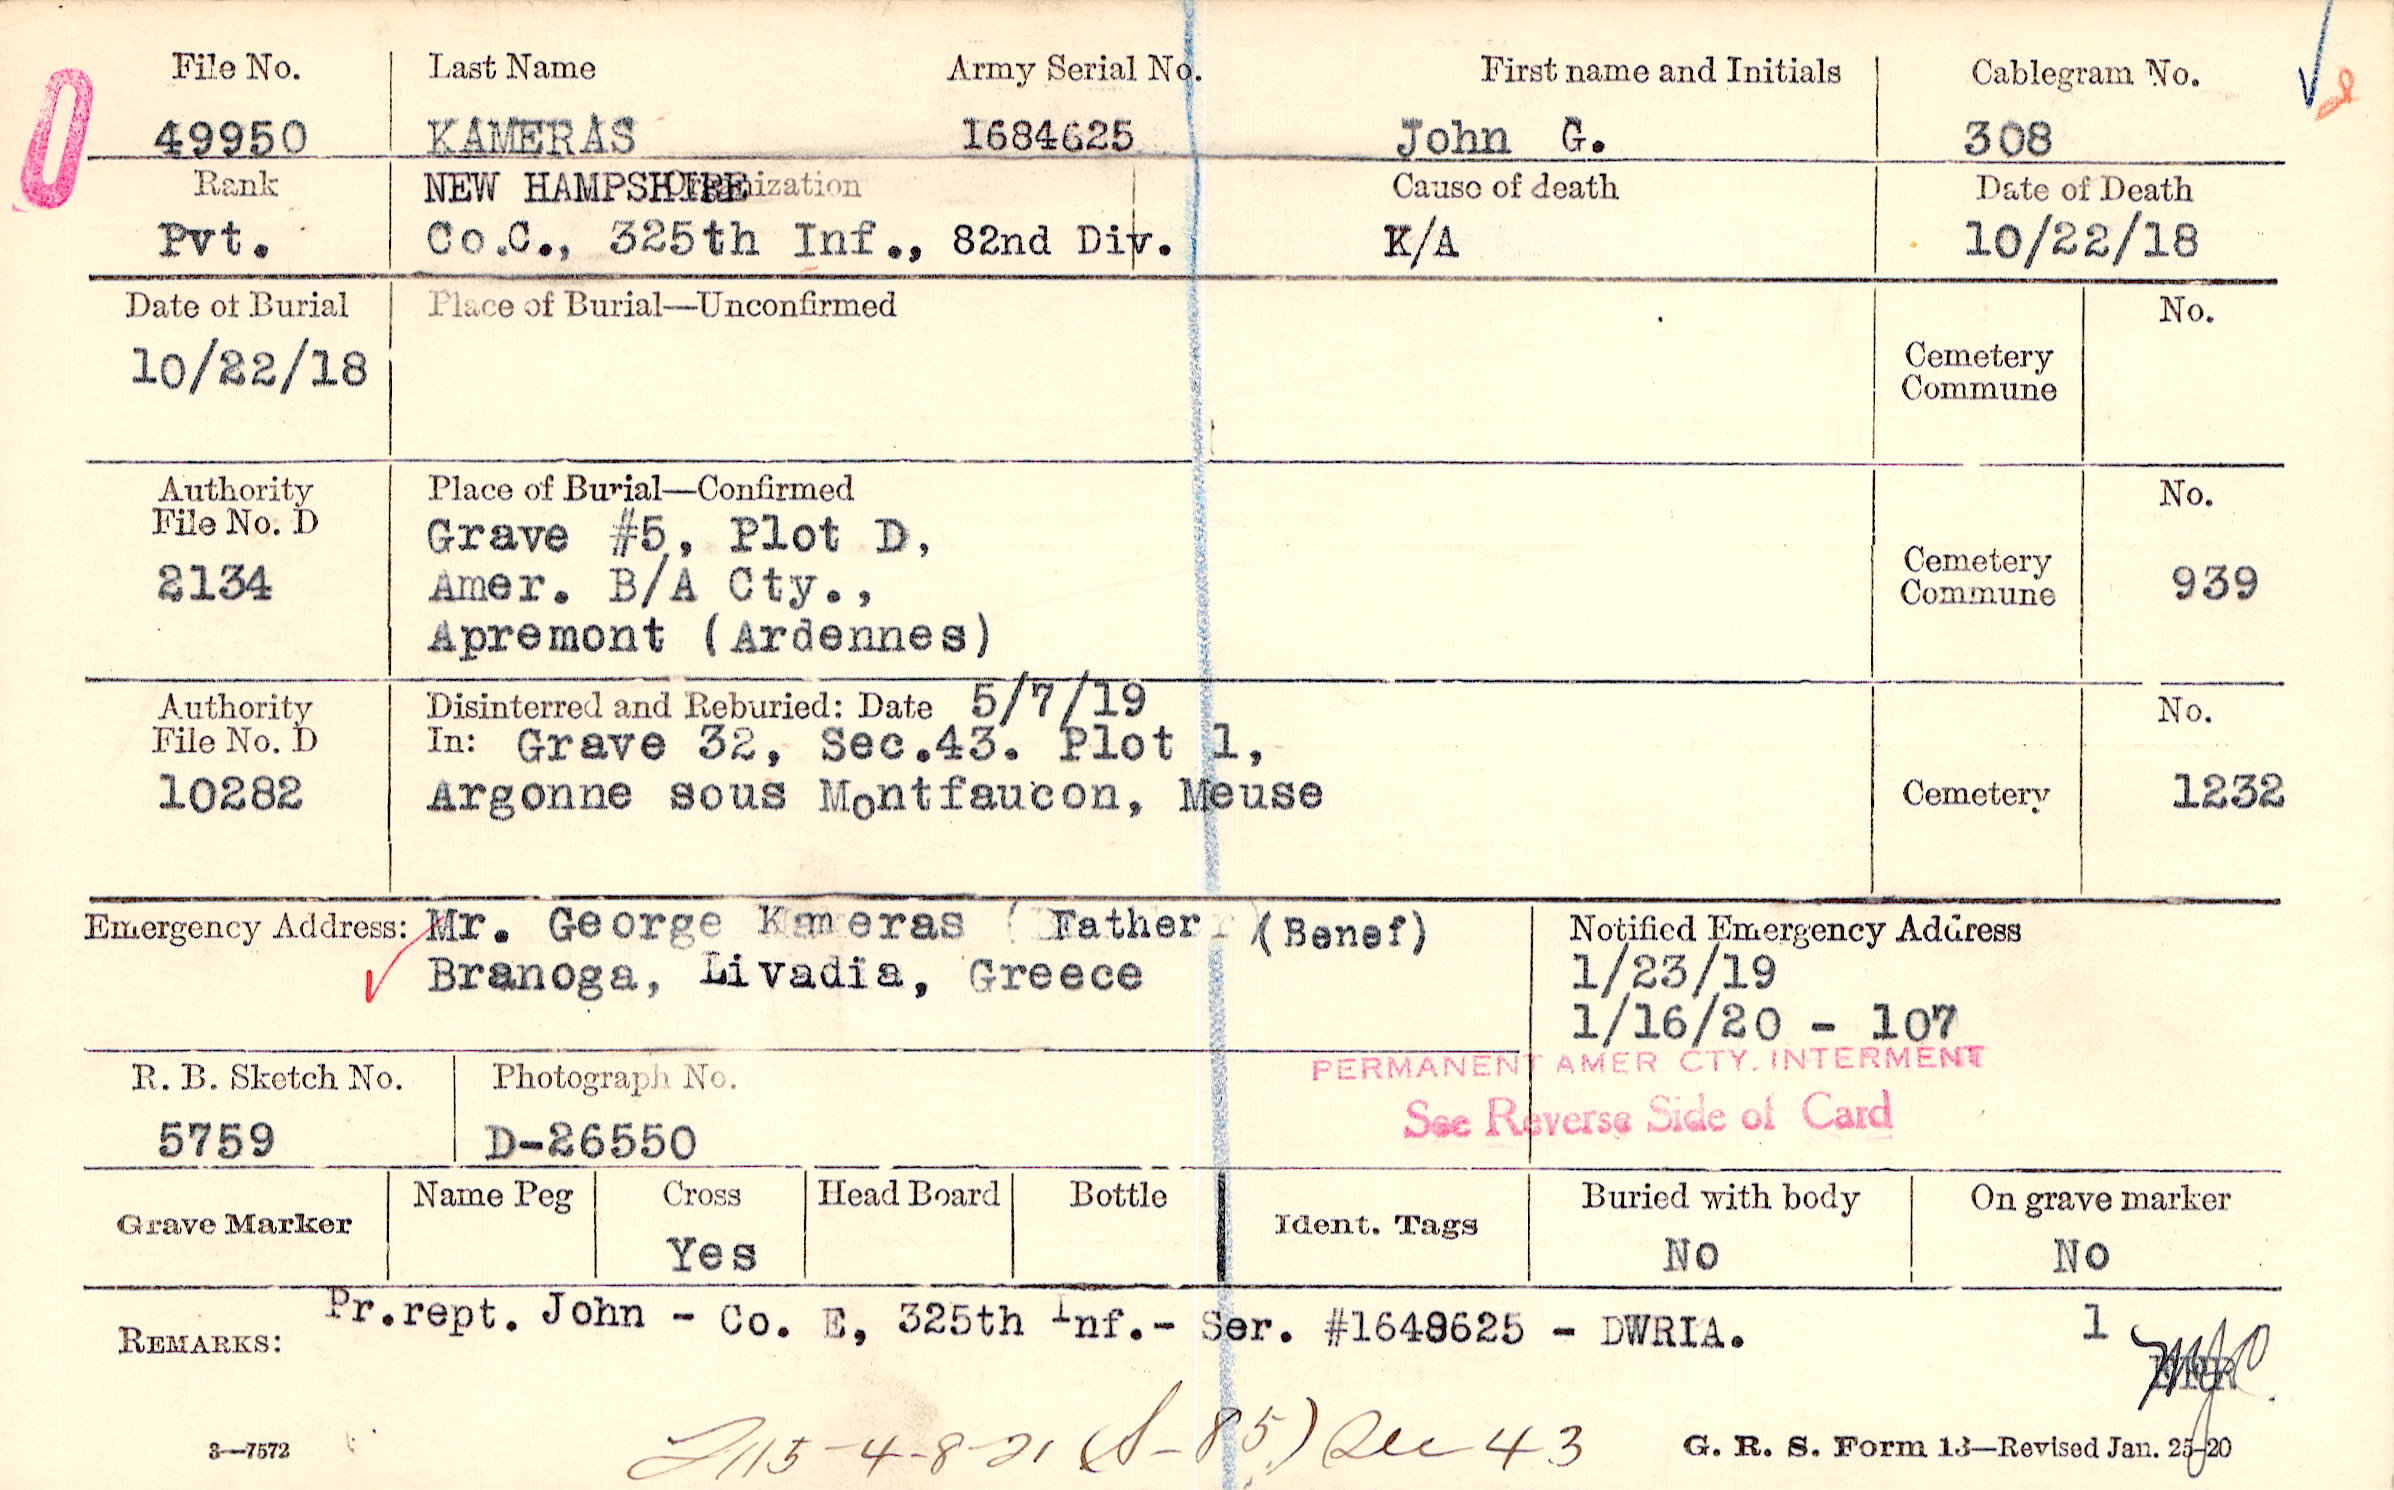 File No. Last Name Army Serial No. First name and Initials Cablegram No.
49950 KAMERAS 1684625 John G. 308
Rank NEW HAMPSHIRE Organization Cause of death Date of Death
Pvt. Co.C., 325th Inf., 82nd Div. K/A 10/22/18
Date of Burial Place of Burial—Unconfirmed No.
10/22/18 Cemetery
Commune
Authority Place of Burial—Confirmed No.
File No. D Grave #5, Plot D,
2134 Amer. B/A Cty., Cemetery
Commune 939
Apremont (Ardennes)
Authority Disinterred and Reburied: Date 5/7/19 No.
File No. D In: Grave 32, Sec.43. Plot 1,
10282 Argonne sous Montfaucon, Meuse Cemetery 1232
Emergency Address: Mr. George Kameras (Father) (Benef) Notified Emergency Address
Branoga, Livadia, Greece 1/23/19
1/16/20 - 107
PERMANENT AMER CTY. INTERMENT
R. B. Sketch No. Photograph No. See Reverse Side of Card
5759 D-26550
Grave Marker Name Peg Cross Head Board Bottle Ident. Tags Buried with body On grave marker
Yes No No
REMARKS: Pr.rept. John - Co. E, 325th Inf.- Ser. #1648625 - DWRIA. 1
115-4-8-21 (S-85) Sec 43
3—7572 G. R. S. Form 13—Revised Jan. 25-20